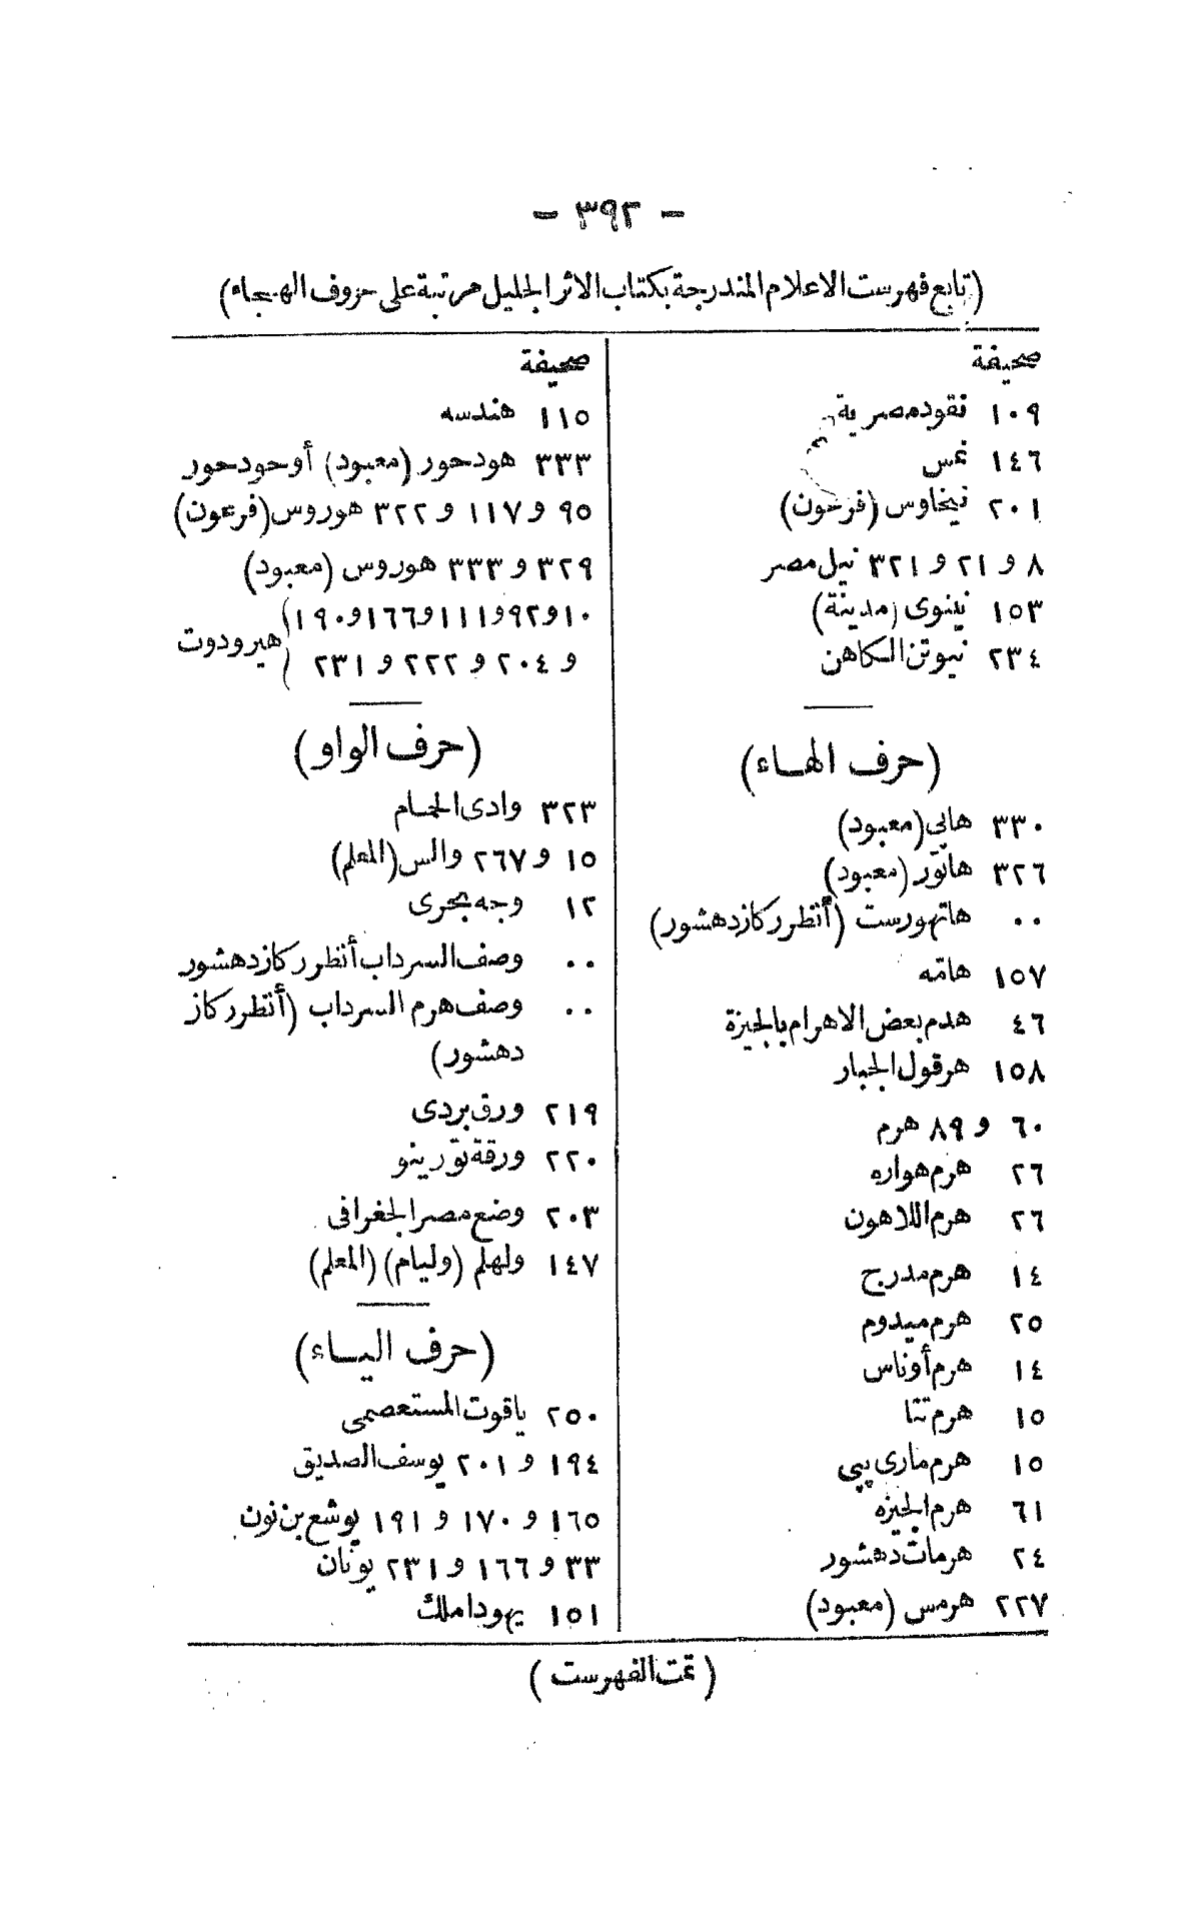 - ٣٩٢ -
(تابع فهرست الاعلام المندرجة بكتاب الاثر الجليل مرتبة على حروف الهجاء)
صحيفة
١٠٩ نقود مصرية
١٤٦ نمس
٢٠١ نيخاوس (فرعون)
٨ و ٢١ و ٣٢١ نيل مصر
١٥٣ نينوى (مدينة)
٢٣٤ نيوتن الكاهن
(حرف الهاء)
٣٣٠ هابي (معبود)
٣٢٦ هاتور (معبود)
٠٠ هاتهورست (أنظر ركاز دهشور)
١٥٧ هامه
٤٦ هدم بعض الاهرام بالجيزة
١٥٨ هرقول الجبار
٦٠ و ٨٩ هرم
٢٦ هرم هواره
٢٦ هرم اللاهون
١٤ هرم مدرج
٢٥ هرم ميدوم
١٤ هرم أوناس
١٥ هرم تتا
١٥ هرم مارى پپى
٦١ هرم الجيزه
٢٤ هرمات دهشور
٢٢٧ هرمس (معبود)
صحيفة
١١٥ هندسه
٣٣٣ هودحور (معبود) أو حودحور
٩٥ و ١١٧ و ٣٢٢ هوروس (فرعون)
٣٢٩ و ٣٣٣ هوروس (معبود)
١٠ و ٩٢ و ١١١ و ١٦٦ و ١٩٠
و ٢٠٤ و ٢٢٢ و ٢٣١ ) هيرودوت
(حرف الواو)
٣٢٣ وادى الحمام
١٥ و ٢٦٧ والس (المعلم)
١٢ وجه بحرى
٠٠ وصف السرداب أنظر ركاز دهشور
٠٠ وصف هرم السرداب (أنظر ركاز
دهشور)
٢١٩ ورق بردى
٢٢٠ ورقة تورينو
٢٠٣ وضع مصر الجغرافى
١٤٧ ولهلم (وليام) (المعلم)
(حرف الياء)
٢٥٠ ياقوت المستعصمى
١٩٤ و ٢٠١ يوسف الصديق
١٦٥ و ١٧٠ و ١٩١ يوشع بن نون
٣٣ و ١٦٦ و ٢٣١ يونان
١٥١ يهودا ملك
(تمت الفهرست)